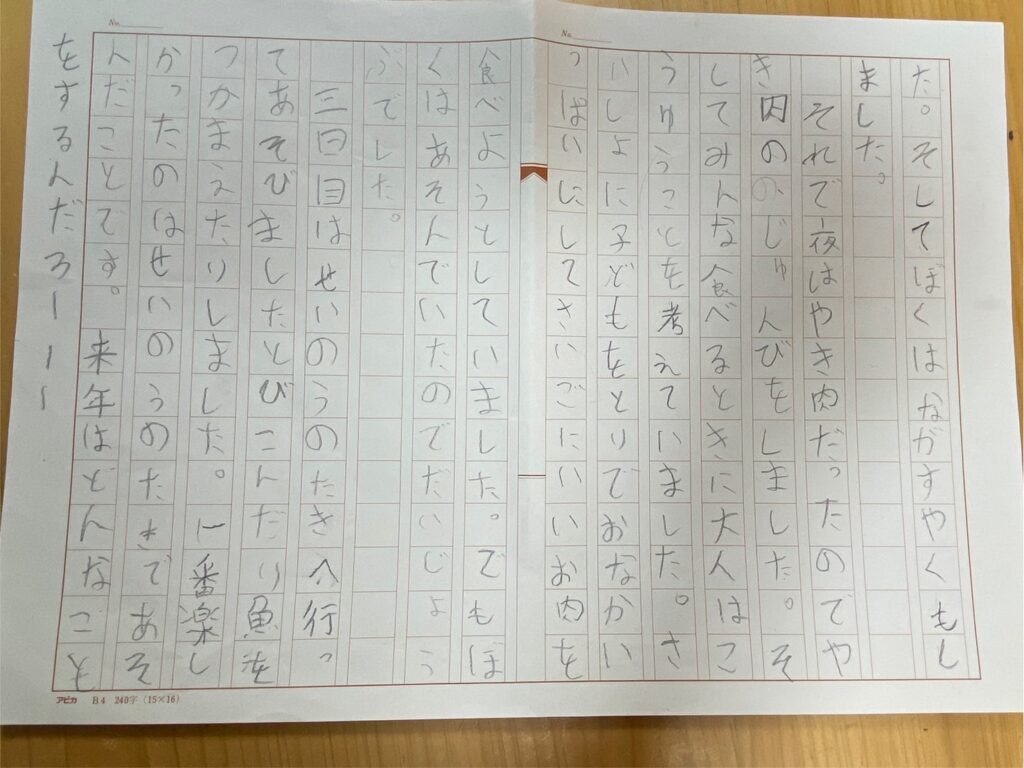 No.
No.
た。そしてぼくはながすやくもし
ました。
それで夜はやき肉だったのでや
き肉ののじゅんびをしました。そ
してみんな食べるときに大人はこ
うゅうことを考えていました。さ
いしょに子どもをとりでおなかい
っぱいにしてさいごにいいお肉を
食べようとしていました。でもぼ
くはあそんでいたのでだいじょう
ぶでした。
三日目はせいのうのたきへ行っ
てあそびましたとびこんだり魚を
つかまえたりしました。一番楽し
かったのはせいのうのたきであそ
んだことです。来年はどんなこと
をするんだろーーー
アピカ B4 240字（15×16）